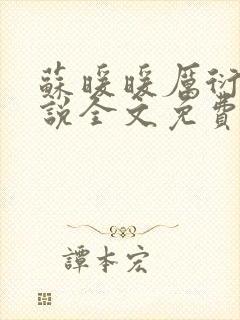 蘇暖暖厲衍
說全文免費
譚本宏